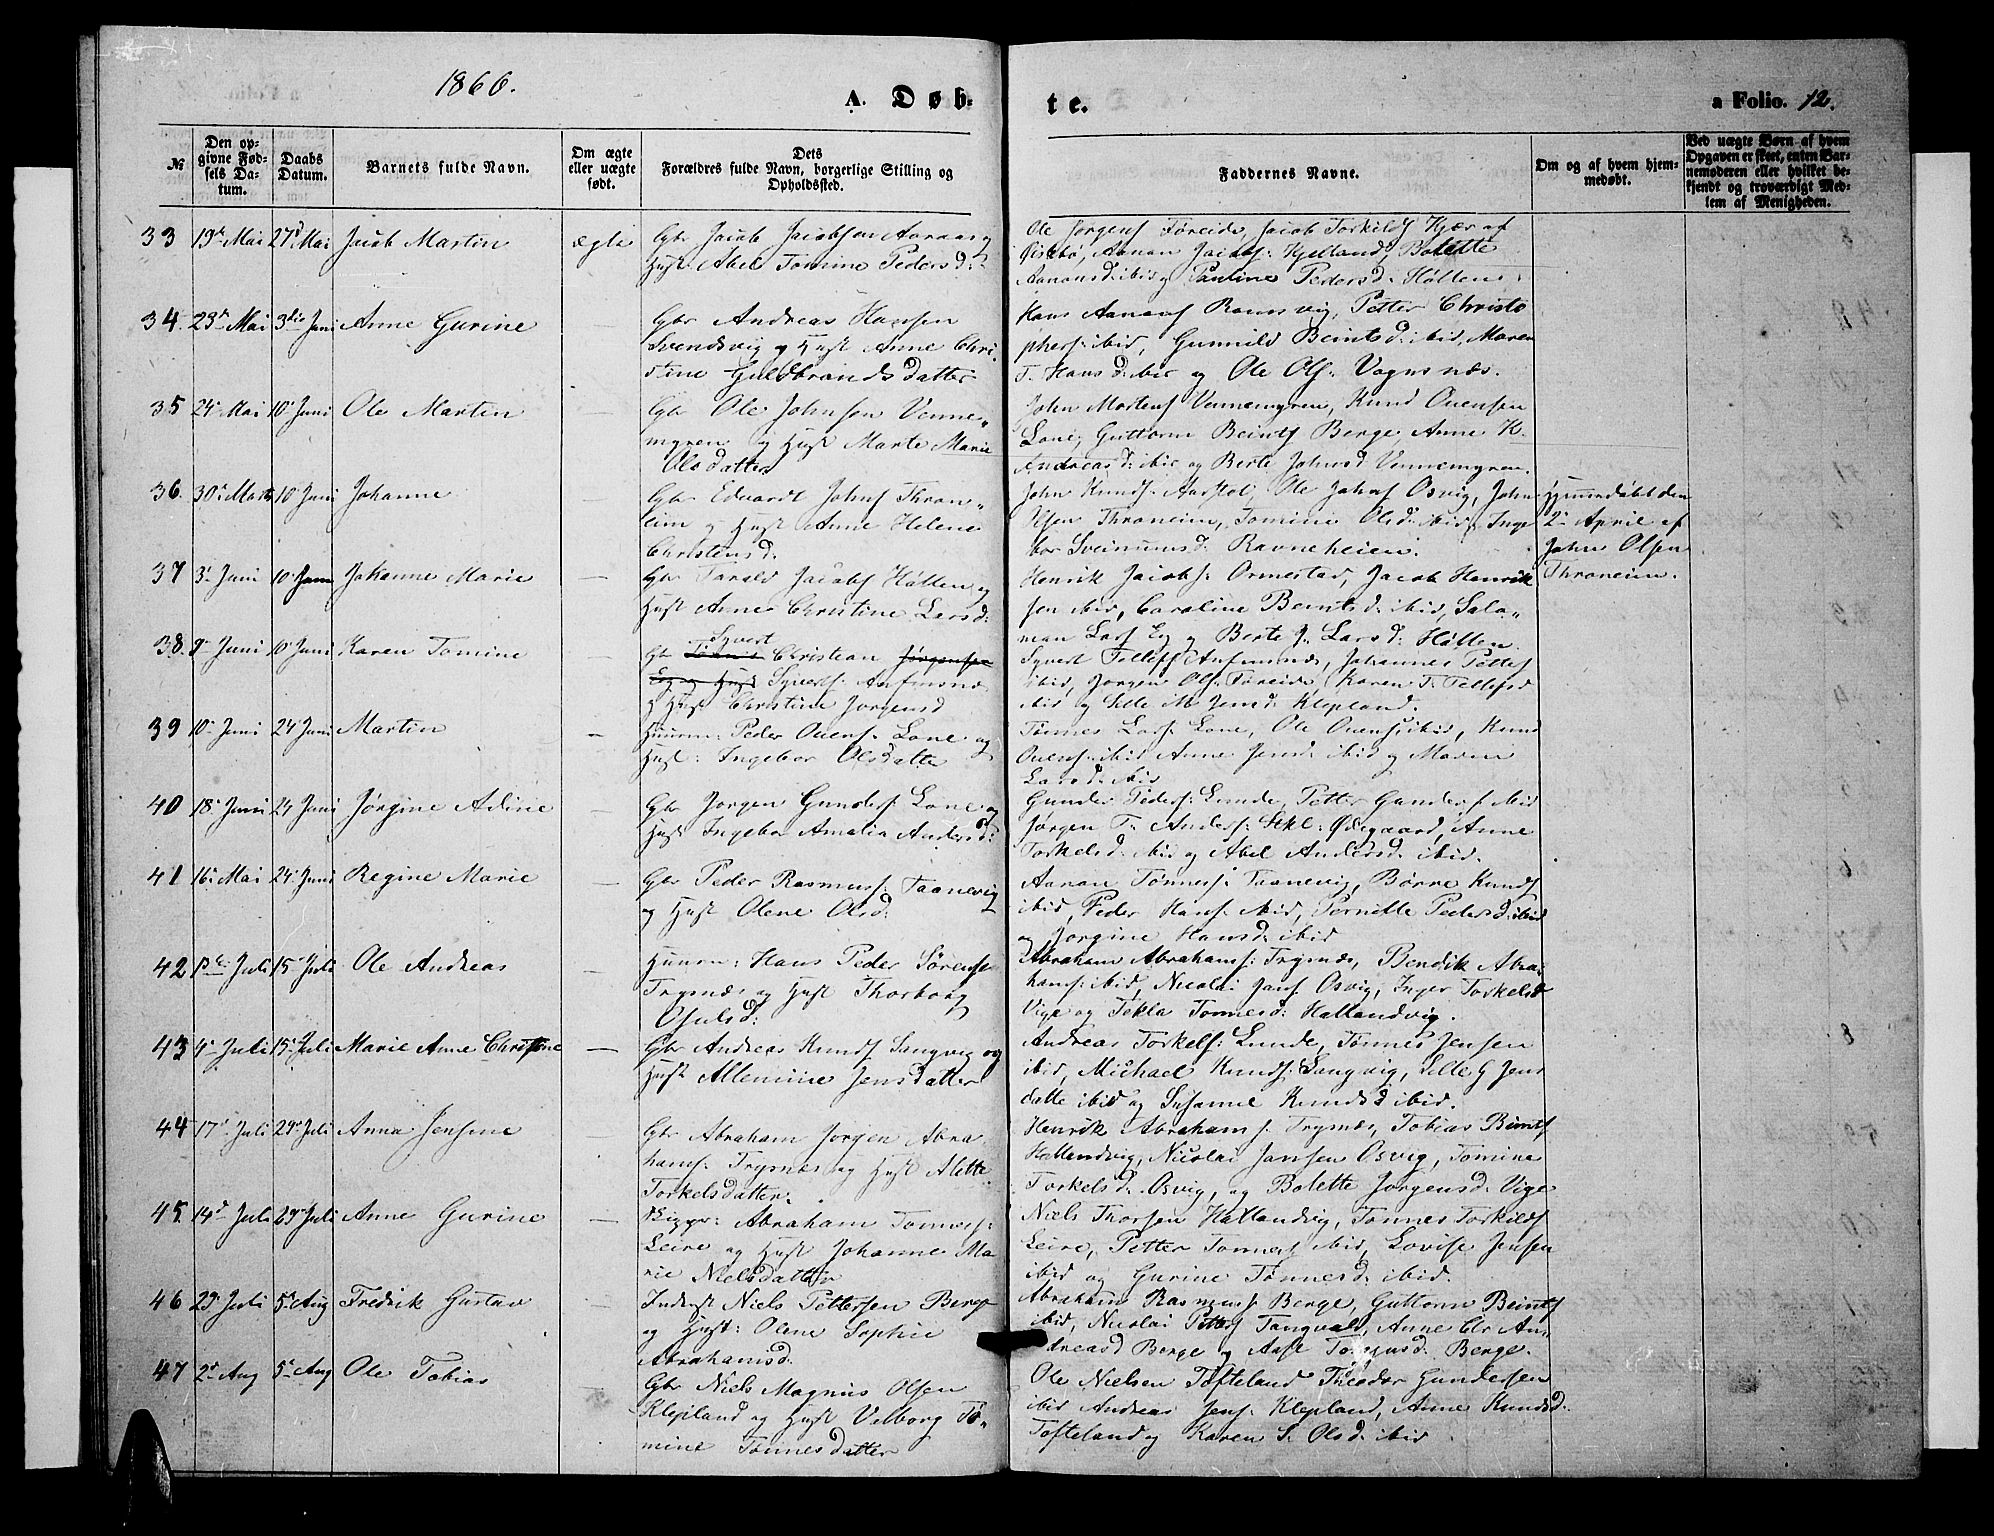 1866.
A. Døb-
te.
a Folio. 12.
№
Den op-
givne Fød-
sels Da-
tum.
Daabs
Datum.
Barnets fulde Navn.
Om ægte
eller uægte
født.
Dets
Forældres fulde Navn, borgerlige Stilling og
Opholdssted.
Faddernes Navne.
Om og af hvem hjem-
medøbt.
Ved uægte Børn af hvem
Opgaven er skeet, enten Bar-
nemoderen eller hvilket be-
kjendt og troværdigt Med-
lem af Menigheden.
33 19de Mai 27d Mai Jacob Martin ægte
Gbr Jacob Jacobsen Aaraas og
Hust. Abel Tomine Pedersd:
Ole Jørgens Føreid, Jacob Torkilds Kjær af
Øislebø, Aanon Jacobs: Kjelland, Bolette
Aanonsd: ibid og Pauline Pedersd: Høllen
34. 23de Mai 3die Juni Anne Gurine —
Gbr Andreas Hansen
Svendsvig og Hust Anne Chri-
stine Guldbrandsdatter
Hans Aanons Ramsvig, Petter Christo
phers: ibid, Gunnild Beintsd: ibid, Maren
T. Hansd: ibid og Ole Ols: Vognsnæs.
35 24. Mai 10. Juni Ole Martin —
Gbr Ole Johnsen Venne-
myren og Hust Marte Marie
Olsdatter
John Mortens Vennemyren, Knud Ovensen
Lone, Guttorm Beints Berge, Anne K.
Andreasd: ibid og Berte Johnsd Vennemyren.
36. 30. Marts 10. Juni Johanne —
Gbr Edvardt Johns Thron-
eim og Hust Anne Helene
Christensd.
John Knuds: Aarstøl, Ole Johns Osvig, John
Olsen Throneim, Tomine Olsd: ibid, Inge
bor Sveinumsd: Ravneheien.
Hjemmedøbt den
2. April af
John Olsen
Throneim.
37 3. Juni 10. Juni Johanne Marie —
Gbr Tarald Jacobs Høllen og
Hust Anne Christine Larsd:
Henrik Jacobs: Ormestad, Jacob Henrik
sen ibid, Caroline Beintsd: ibid, Salo-
mon Lars Eg og Berte J. Larsd: Høllen.
38. 9. Juni 10. Juni Karen Tomine —
Syvert
Gbr Christian Jørgensen
Eg og Hust Syverts:
og Hust Christine Jørgensd
Syvert Tellefs, Johannes Pettes
ibid, Jørgen Ols: Føreid, Karen T. Tellefsd
ibid og Selle M Jensd: Klepland.
39 10. Juni 24 Juni Martin —
Huusm: Peder Ovens: Lone og
Hust: Ingebor Olsdatter
Tønnes Lars: Lone, Ole Ovens: ibid, Knud
Ovens: ibid Anne Jensd: ibid og Maren
Larsd: ibid
40 18. Juni 24 Juni Jørgine Adine —
Gbr Jørgen Gunders: Lone og
Hust Ingebor Amalia Andersd:
Gunder Peders: Lunde, Petter Gunders: ibid
Jørgen T: Anders: Skl: Ødegaard, Anne
Torkelsd: ibid og Abel Andersd: ibid.
41 16. Mai 24. Juni Regine Marie —
Gbr Peder Rasmus: Taanevig
og Hust Olene Olsd:
Aanon Tønnes: Taanevig, Børre Knuds
ibid, Peder Hans: ibid, Pernette Pedersd: ibid
og Jørgine Hansd: ibid
42 1ste Juli 15. Juli Ole Andreas —
Huusm: Hans Peder Sørens
Trysnæs og Hust Thorborg
Osulsd:
Abraham Abrahams: Trysnæs, Bendik Abra-
hams: ibid, Nicolai Jans: Osvig, Inger Torkelsd
Vige og Tekla Tønnesd: Hallandvig.
43 4. Juli 15. Juli Marie Anne Christine —
Gbr Andreas Knuds Langvig og
Hust Allemine Jensdatter
Andreas Torkels: Lunde, Tønnes Jensen
ibid, Michael Knuds: Langvig, Selle G Jens
datte ibid og Susanne Knudsd ibid.
44 17d Juli 29. Juli Anna Jensine —
Gbr Abraham Jørgen Abra
hams: Trysnes og Hust Alette
Torkelsdatter.
Henrik Abrahams: Trysnæs, Tobias Beints
Hallandvig, Nicolai Jansen Osvig, Tomine
Torkelsd: Osvig, og Bolette Jørgensd: Vige
45. 14d Juli 29. Juli Anne Gurine —
Bygger: Abraham Tønnes:
Leire og Hust Johanne Ma-
rie Nielsdatter
Niels Thorsen Hallandvig, Tønnes Torkilds
Leire, Petter Tønnes ibid, Lovise Jensen
ibid og Gurine Tønnesd: ibid.
46 29. Juli 5. Aug Fredrik Gustav —
Inderst Niels Pettersen Berge
og Hust: Olene Sophie
Abrahamsd.
Abraham Rasmus: Berge, Guttorm Beints
ibid, Nicolai Petters Tangvald, Anne Chr An-
dreasd Berge og Aase Torjusd: Berge.
47 2. Aug 5. Aug Ole Tobias —
Gbr Niels Magnus Olsen
Klepland og Hust Velborg To-
mine Tønnesdatter
Ole Nielsen Tofteland Theodor Gundersen
ibid Andreas Jens: Klepland, Anne Knudsd.
Tofteland og Karen S. Olsd: ibid